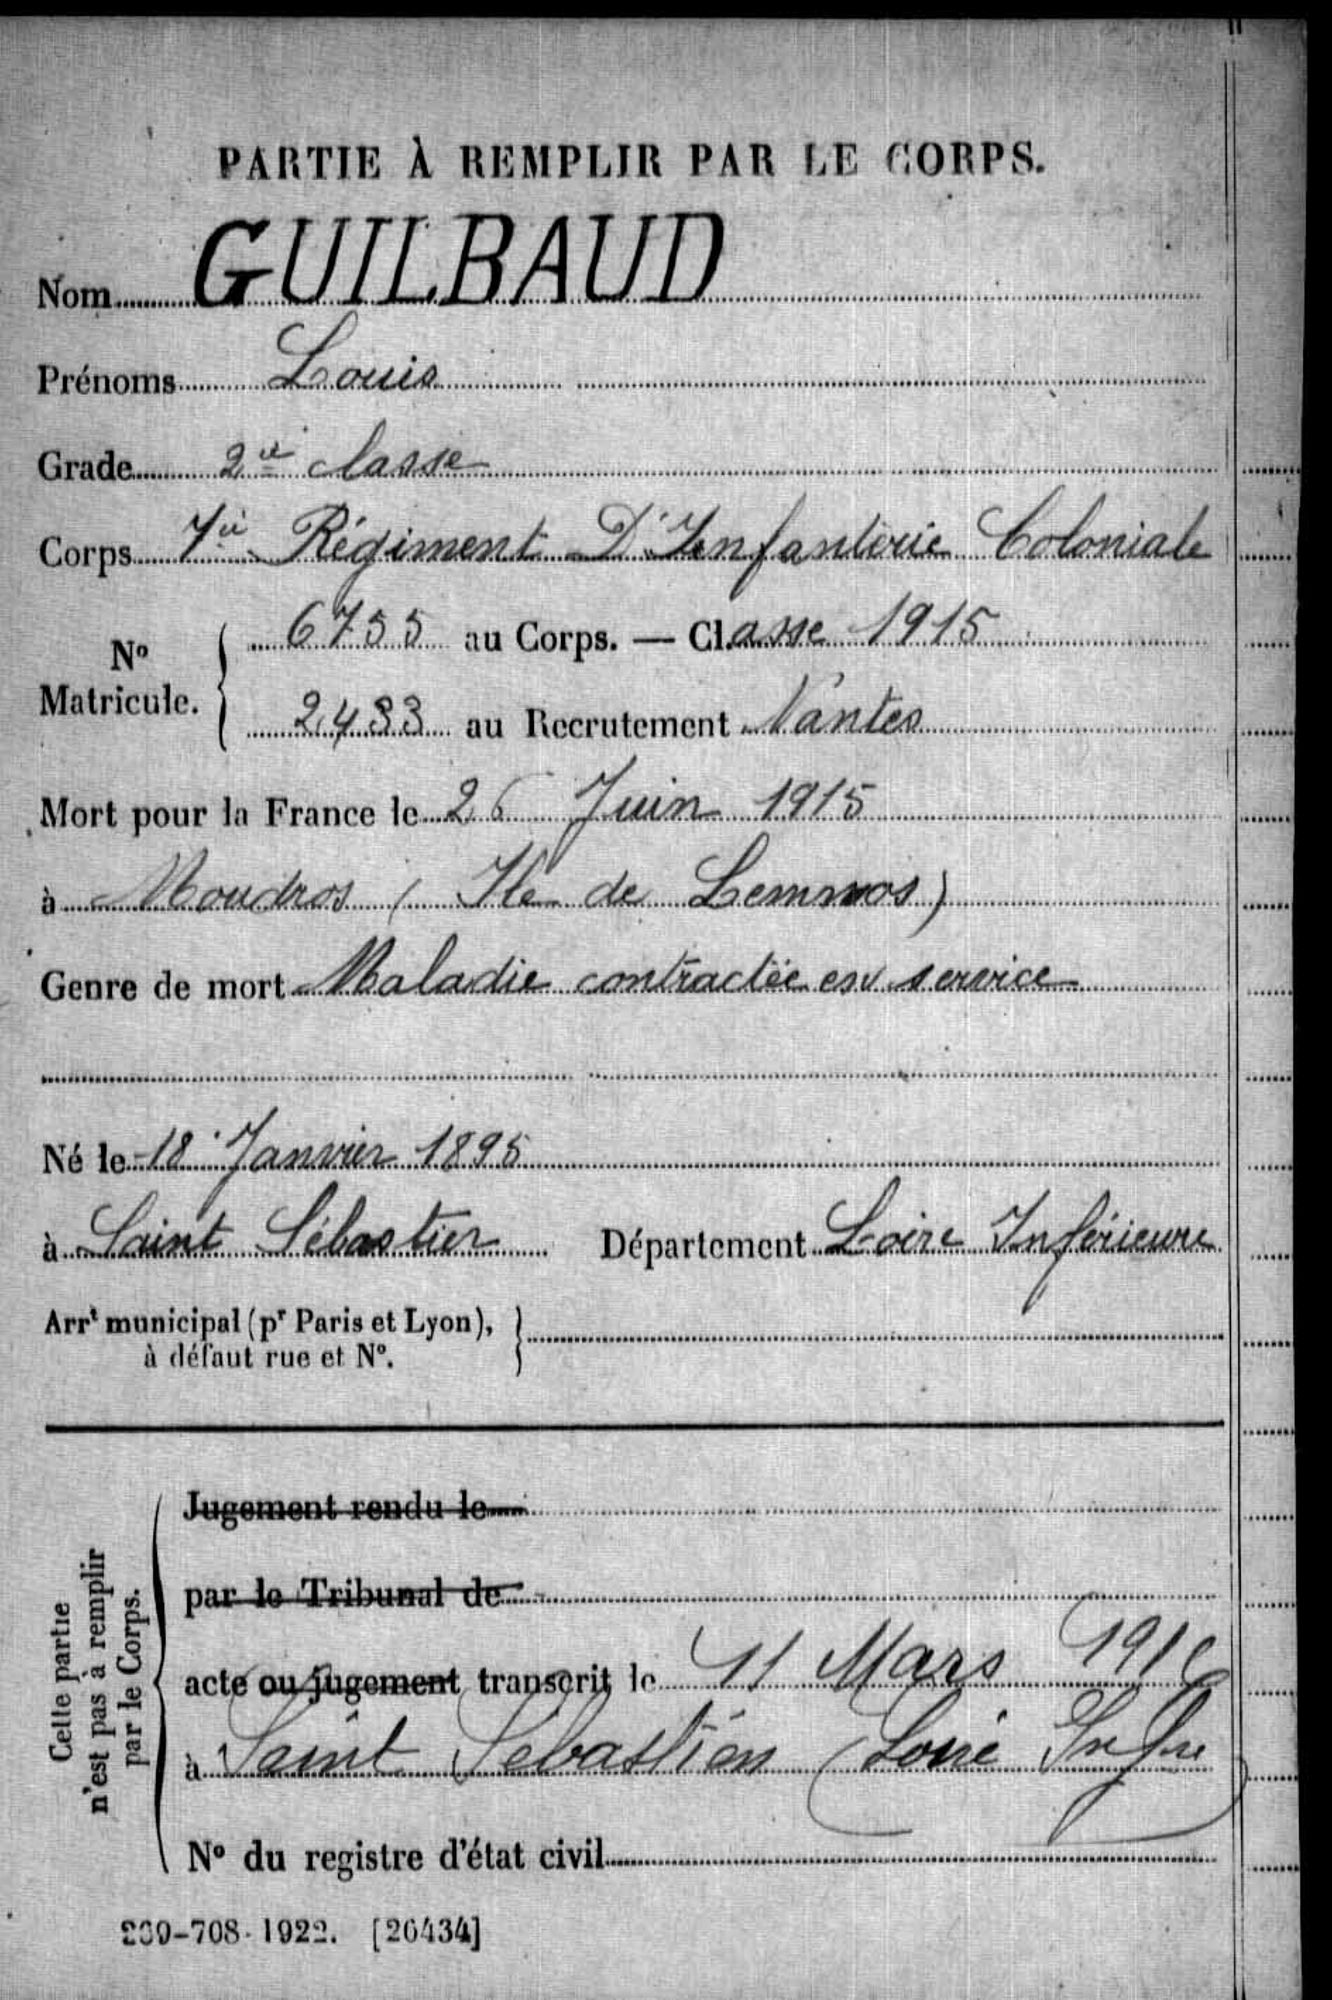 PARTIE À REMPLIR PAR LE CORPS.
Nom GUILBAUD
Prénoms Louis
Grade 2è classe
Corps 7è Régiment D'Infanterie Coloniale
No Matricule. { 6755 au Corps. — Cl.asse 1915
2433 au Recrutement Nantes
Mort pour la France le 26 Juin 1915
à Moudros (Ile de Lemnos)
Genre de mort Maladie contractée en service
Né le 18 Janvier 1895
à Saint Sébastien Département Loire Inférieure
Arrt municipal (pr Paris et Lyon), }
à défaut rue et No.
Cette partie
n'est pas à remplir
par le Corps.
Jugement rendu le
par le Tribunal de
acte ou jugement transcrit le 11 Mars 1916
à Saint Sébastien (Loire Infre)
No du registre d'état civil
239-708-1922. [26434]